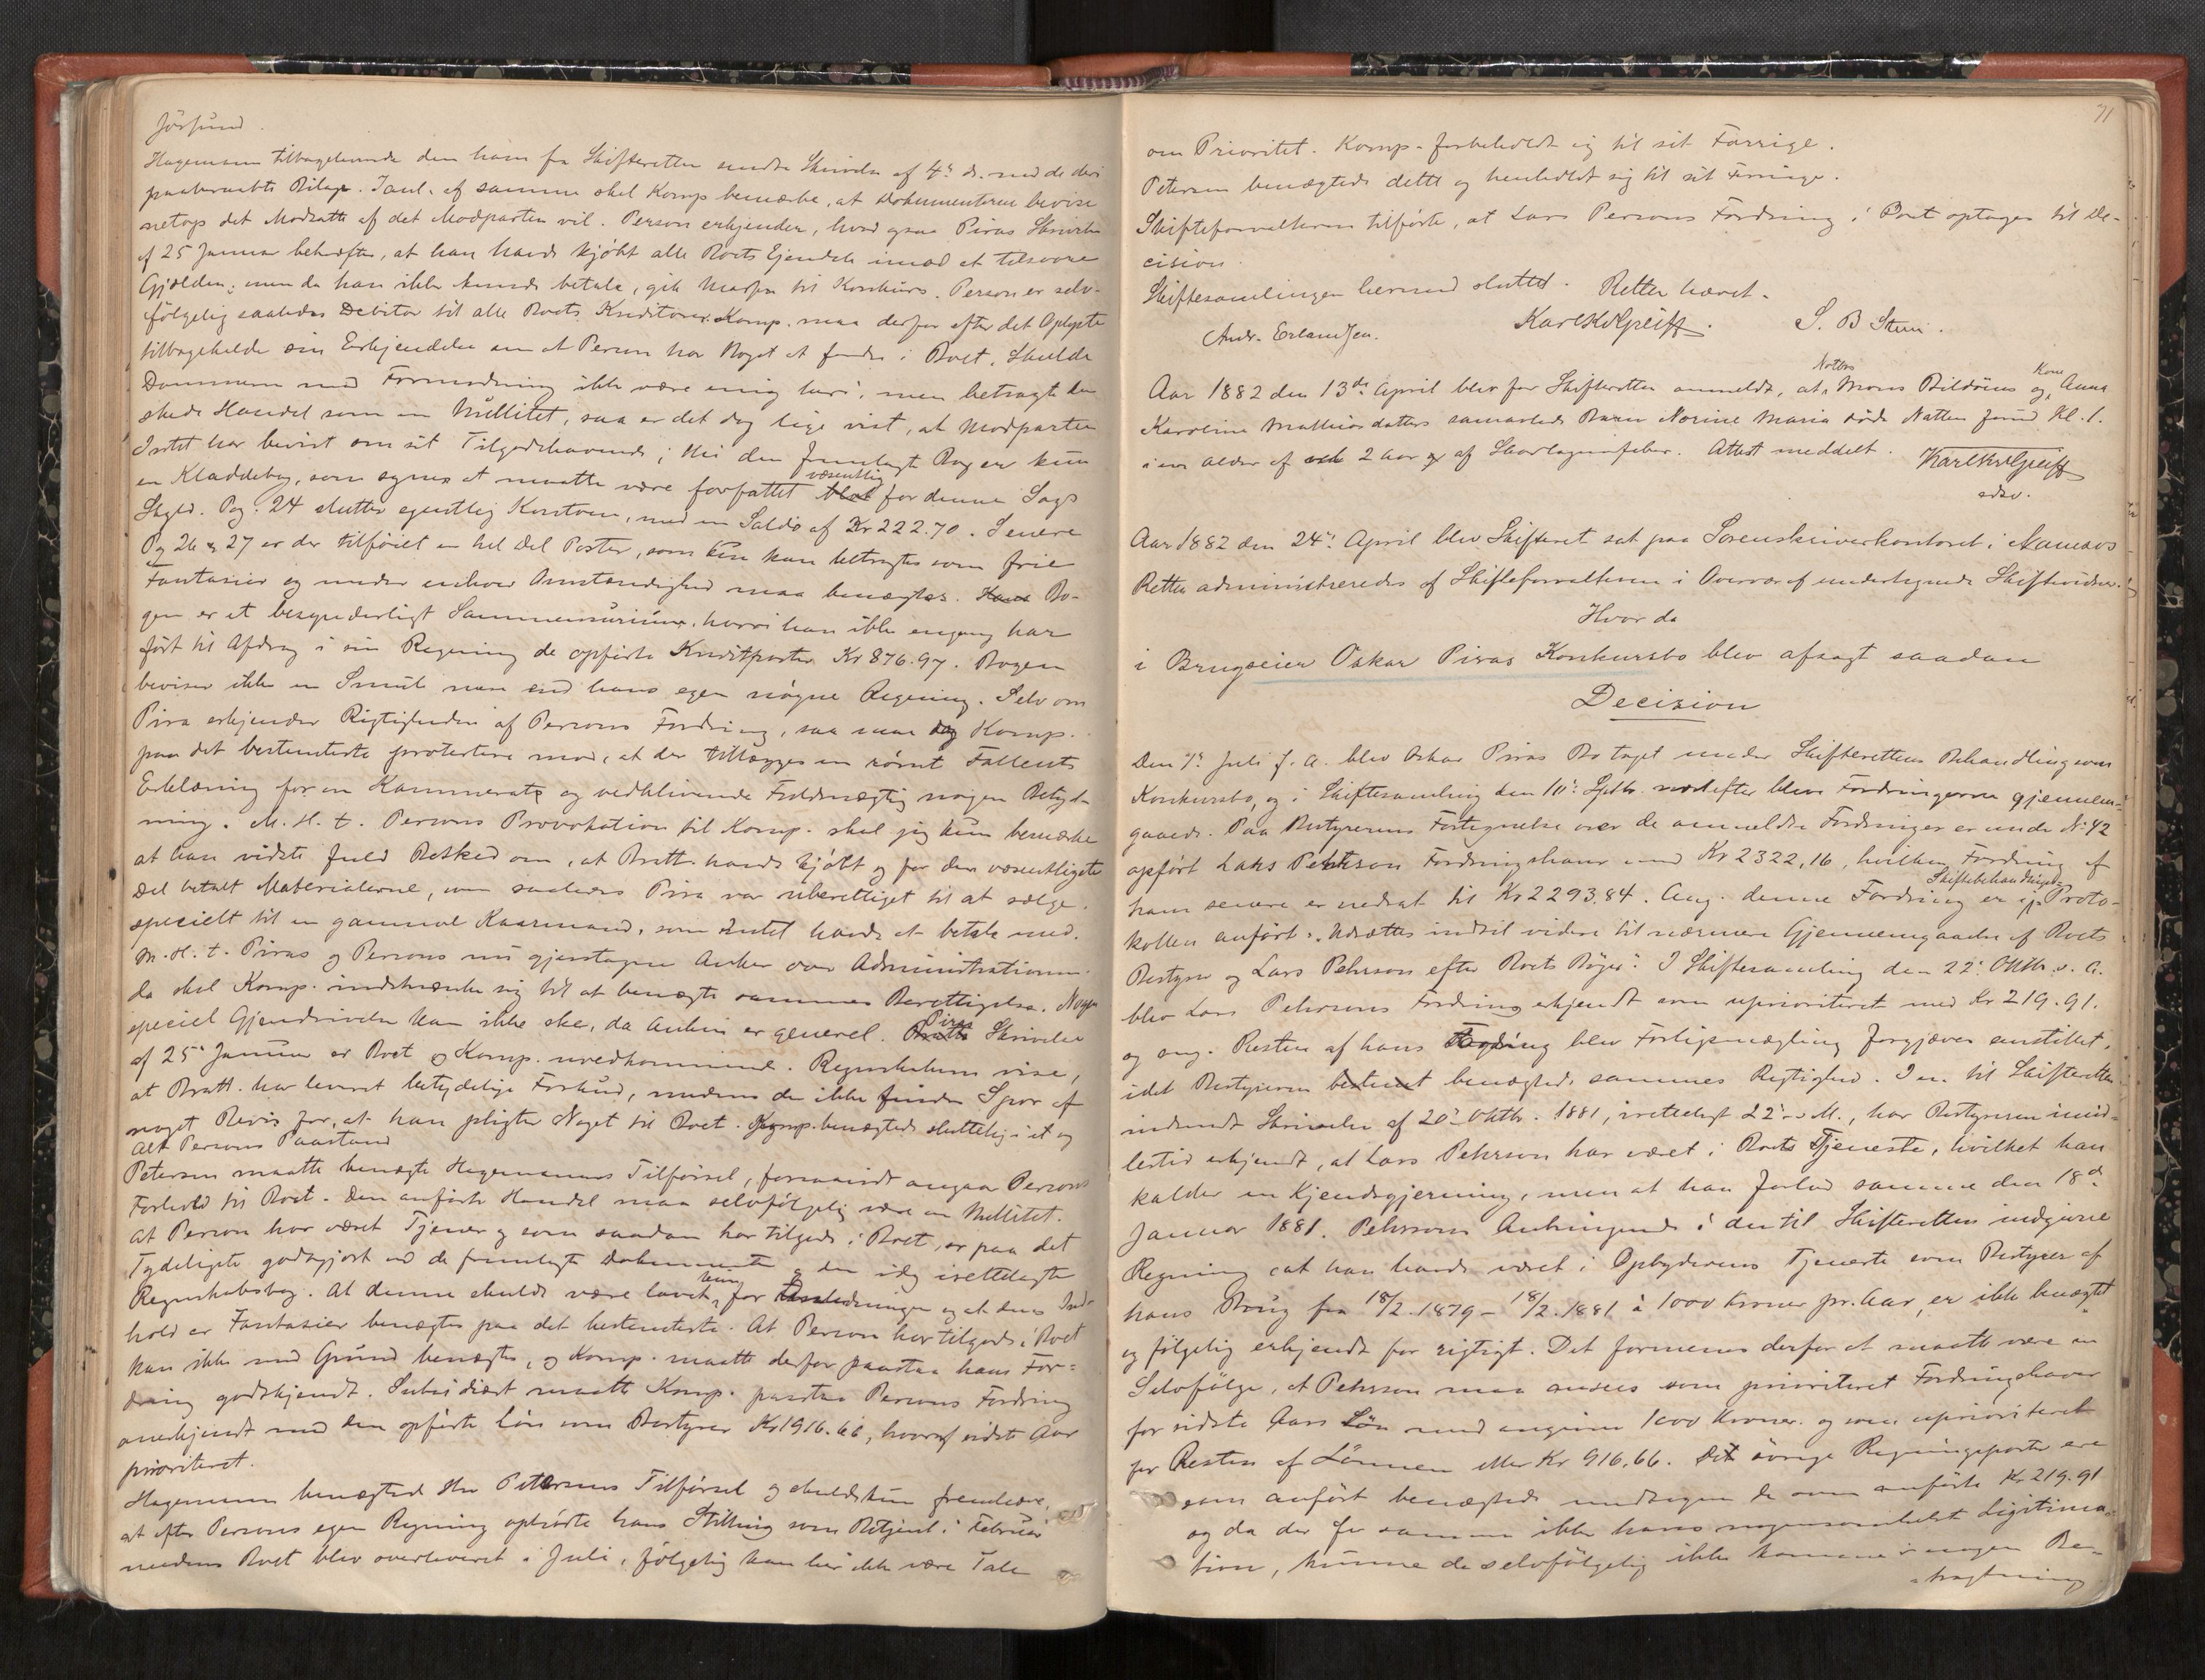 Jörsund.
Hagemann tilbageleverede den ham fra Skifteretten sendte Skrivelse af 4de ds. med de deri
paaberaabte Bilage. I Anl. af samme skal Komp bemærke, at Dokumenterne bevise
netop det Modsatte af det Modparten vil. Person erkjender, hvad ogsaa Piras Skrivelse
af 25 Januar bekræfter, at han havde kjöbt alle Boets Ejendele imod at tilsvare
Gjælden; men da han ikke kunde betale, gik Massen til Konkurs. Person er selv-
fölgelig saaledes Debitor til alle Boets Kreditorer. Komp. maa derfor efter det Oplyste
tilbageholde sin Erkjendelse om at Person har Noget at fordre i Boet. Skulde
Dommeren mod Formodning ikke være enig heri, men betragte den
skede Handel som en Nullitet, saa er det dog lige vist, at Modparten
Intet har bevist om sit Tilgodehavende; thi den fremlagte Bog er kun
en Kladdebog, som synes at maatte være forfattet væsentlig for denne Sags
Skyld. Pag. 24 slutter egentlig Kontoen, med en Saldo af Kr 222.70. Senere
Pg 26 & 27 er der tilföiet en hel Del Poster, som kun kan betragtes som frie
Fantasier og under enhver Omstændighed maa benægtes. Bo-
gen er et besynderligt Sammensurium, hvori han ikke engang har
fört til Afdrag i sin Regning de opförte Kreditposter Kr 876.97. Bogen
beviser ikke en Smule mere end hans egen nögne Regning. Selv om
Pira erkjender Rigtigheden af Persons Fordring, saa maa dog Komp.
paa det bestemteste protestere mod, at der tillægges en saadan Fallents
Erklæring for en Kammerat og vedblivende Fuldmægtig nogen Betyd-
ning. M. H. t. Persons Provokation til Komp. skal jeg kun bemærke
at han vidste fuld Besked om, at Bratt havde kjöbt og for den væsentligste
Del betalt Materialerne, som saaledes Pira var uberettiget til at sælge,
specielt til en gammel Kaarmand, som Intet havde at betale med.
M. H. t. Piras og Persons nu gjentagne Anker over Administrationen
da skal Komp. indskrænke sig til at benægte sammes Berettigelse. Nogen
speciel Gjendrivelse kan ikke ske, da Anken er generel. Piras Skrivelse
af 25 Januar er Boet og Komp. uvedkommende. Regnskaberne vise,
at Bratt har leveret betydelige Forskud, medens der ikke findes Spor af
noget Bevis for, at han pligter Noget til Boet. Komp. benægtede sluttelig i et og
Alt Persons Paastand
Petersen maatte benægte Hagemanns Tilförsel, forsaavidt angaar Persons
Forhold til Boet. Den anförte Handel maa selvfölgelig være en Nullitet.
At Person har været Tjener og som saadan har tilgode i Boet, er paa det
Tydeligste godtgjort ved de fremlagte Dokumenter og den idag irettelagte
Regnskabsbog. At denne skulde være lavet kun for Anledningen og at dens Ind-
hold er Fantasier benægtes paa det bestemteste. At Person har tilgode i Boet
kan ikke med Grund benægtes, og Komp. maatte derfor paastaa hans For-
dring godkjendt. Subsidiært maatte Komp. paastaa Persons Fordring
anerkjendt med den opförte Lön som Bestyrer Kr 1916.66, hvoraf sidste Aar
prioriteret.
Hagemann benægtede Hr Petersens Tilförsel og skulde kun fremhæve,
at efter Persons egen Regning ophörte hans Stilling som Betjent i Februar
medens Boet blev overleveret i Juli, fölgelig kan her ikke være Tale
71
om Prioritet. Komp. forbeholdt sig til sit Forrige.
Petersen benægtede dette og henholdt sig til sit Forrige.
Skifteforvalteren tilförte, at Lars Persons Fordring i Boet optages til De-
cision.
Skiftesamlingen hermed sluttet. Retten hævet.
Andr. Erlandsen. Karl Greiff. S. B Stene.
Aar 1882 den 13de April blev for Skifteretten anmeldt, at Notbas Mons Bildöens og Kone Anna
Karoline Mathiasdatters sammavlede Barn Norine Maria döde Natten forud Kl. 1.
i en Alder af 2 Aar af Skarlagensfeber. Attest meddelt. Karl Greiff
edsv.
Aar 1882 den 24de April blev Skifteret sat paa Sorenskriverkontoret i Namsos
Retten administreredes af Skifteforvalteren i Overvær af undertegnede Skiftevidner.
Hvor da
i Brugseier Oskar Piras Konkursbo blev afsagt saadan
Decision
Den 7de Juli f. A. blev Oskar Piras Bo taget under Skifterettens Behandling som
Konkursbo, og i Skiftesamling den Septbr. næstefter bleve Fordringerne gjennem-
gaaede. Paa Bestyrerens Fortegnelse over de anmeldte Fordringer er under No 42
opfört Lars Pehrson Fordringshaver med Kr 2322,16, hvilken Fordring af
ham senere er nedsat til Kr 2293.84. Ang. denne Fordring er i Skiftebehandlings Proto-
kollen anfört: "Udsættes indtil videre til nærmere Gjennemgaaelse af Boets
Bestyrer og Lars Pehrson efter Boets Böger." I Skiftesamling den 22de Oktbr. s. A.
blev Lars Pehrsons Fordring erkjendt som uprioriteret med Kr 219.91.
og ang. Resten af hans Fordring blev Forligsmægling forgjæves anstillet,
idet Bestyreren bestemt benægtede sammes Rigtighed. I en til Skifteretten
indsendt Skrivelse af 20de Oktbr. 1881, irettelagt 22de s. M., har Bestyreren imid-
lertid erkjendt, at Lars Pehrson har været i Boets Tjeneste, hvilket han
kalder en Kjendsgjerning, men at han forlod samme den 18de
Januar 1881. Pehrsons Anbringende i den til Skifteretten indgivne
Regning "at han havde været i Opbyderens Tjeneste som Bestyrer af
hans Brug fra 18/2. 1879 - 18/2. 1881 à 1000 Kroner pr. Aar," er ikke benægtet
og fölgelig erkjendt for rigtigt. Det formenes derfor at maatte være en
Selvfölge, at Pehrson maa ansees som prioriteret Fordringshaver
for sidste Aars Lön med 1000 Kroner og som uprioriteret
for Resten af Lönnen eller Kr 916.66. De övrige Regningsposter ere
som anfört benægtede undtagen de oven anförte Kr 219.91
og da der for samme ikke haves nogensomhelst Legitima-
tion, kunne de selvfölgelig ikke komme i nogen Be-
tragtning